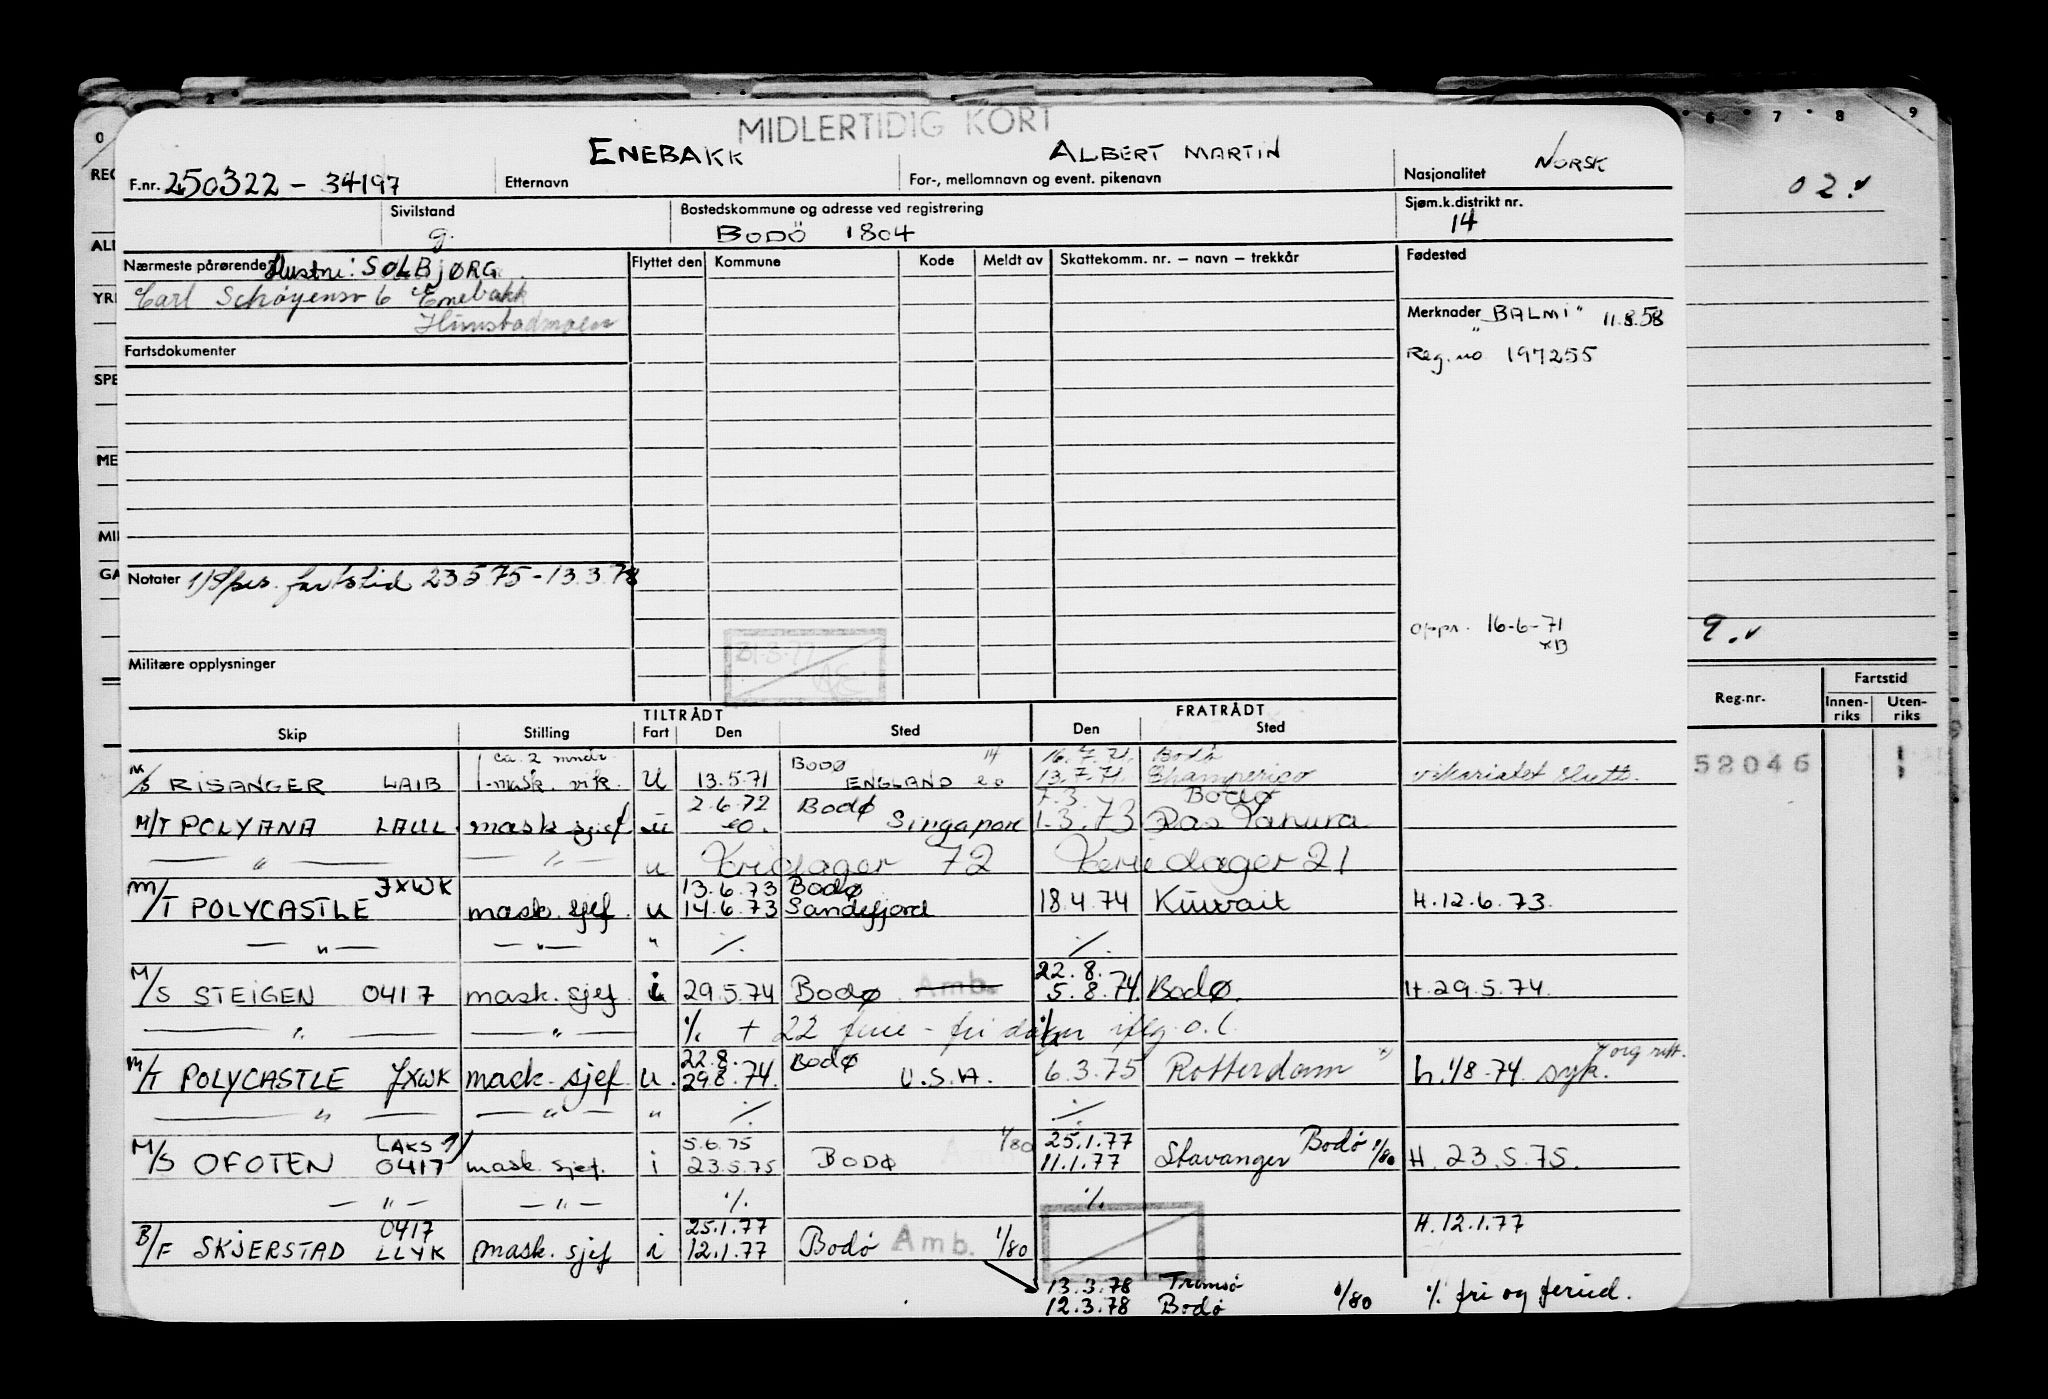 MIDLERTIDIG KORT
F.nr. 250322 - 34197 ENEBAKK Etternavn ALBERT MARTIN For-, mellomnavn og event. pikenavn Nasjonalitet NORSK
02.
Sivilstand g. Bostedskommune og adresse ved registrering BODÖ 1804 Sjøm.k.distrikt nr. 14
Nærmeste pårørende Hustru: SOLBJØRG Flyttet den Kommune Kode Meldt av Skattekomm. nr. — navn — trekkår Fødested
Carl Schøyensv 6 Enebakk
Hunstadmoen
Merknader "BALMI" 11.8.58
Reg. no 197255
Fartsdokumenter
Notater 1/8 fartstid 23.5.75 - 13.3.78
oppr. 16-6-71
9.
Militære opplysninger
Reg.nr. Fartstid
Innen-riks Uten-riks
TILTRÅDT FRATRÅDT
Skip Stilling Fart Den Sted Den Sted
ca. 2 mndr. BODØ 14 16.7.71. Bodø
M/S RISANGER LAIB 1-mask. vik. U 13.5.71 ENGLAND eo 13.7.71. Champerico vikariatet slutt. 52046
2.6.72 Bodø 7.3. Bodø
M/T POLYANA LAUL. mask sjef u eo. Singapore 1.3.73 Ras Tanura
— " — — " — u Feriedager 72 Feriedager 21
JXWK 13.6.73 Bodø
M/T POLYCASTLE mask. sjef. u 14.6.73 Sandefjord 18.4.74 Kuwait H.12.6.73.
— " — — " — " ./. ./.
22.8.
M/S STEIGEN 0417 mask. sjef i 29.5.74 Bodø Amb. 5.8.74. Bodø. H.29.5.74.
— " — — " — ./. + 22 ferie - fri dager iflg. o.l.
22.8. Bodø
M/T POLYCASTLE JXWK mask. sjef u. 29.8.74. U.S.A. 6.3.75 Rotterdam h.1/8-74. syk.
— " — — " — " ./. ./.
LAKS 5.6.75 1/80 25.1.77 Bodø 1/80
M/S OFOTEN 0417 mask. sjef. i 23.5.75 BODØ 11.1.77 Stavanger H. 23.5.75.
— " — — " — ./. ./.
0417 25.1.77 H.12.1.77
B/F SKJERSTAD LLYK mask. sjef i 12.1.77 Bodø Amb. 1/80
13.3.78 Tromsø
12.3.78 Bodø 1/80 ./. fri og feried.